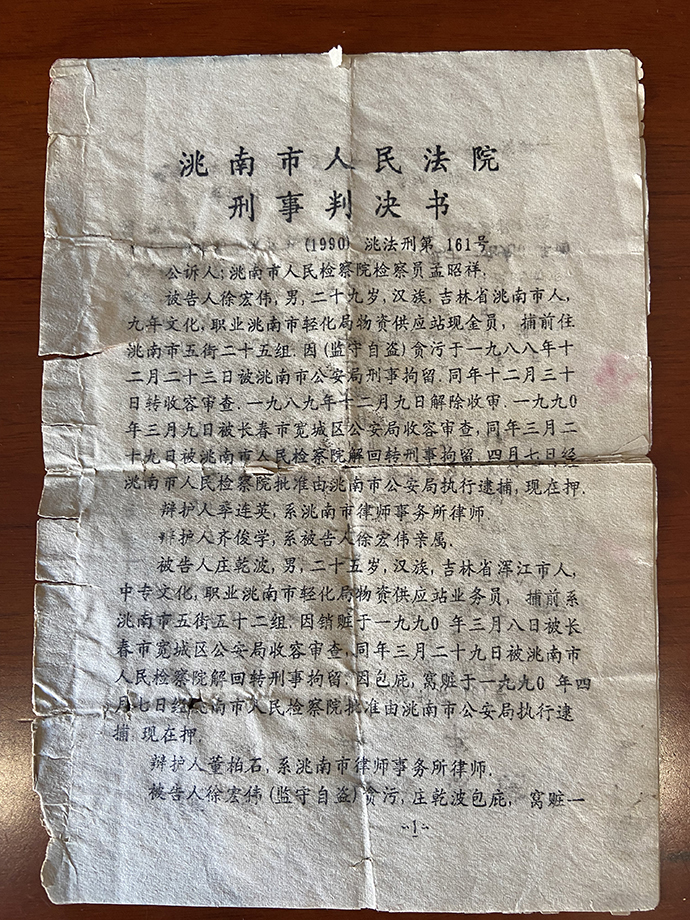 洮南市人民法院
刑事判决书
(1990) 洮法刑第 161号
公诉人;洮南市人民检察院检察员孟昭祥.
被告人徐宏伟,男,二十九岁,汉族,吉林省洮南市人,
九年文化,职业洮南市轻化局物资供应站现金员, 捕前住
洮南市五街二十五组.因(监守自盗)贪污于一九八八年十
二月二十三日被洮南市公安局刑事拘留.同年十二月三十
日转收容审查.一九八九年十二月九日解除收审.一九九0
年三月九日被长春市宽城区公安局收容审查,同年三月二
十九日被洮南市人民检察院解回转刑事拘留.四月七日经
洮南市人民检察院批准由洮南市公安局执行逮捕,现在押.
辩护人连英,系洮南市律师事务所律师.
辩护人齐俊学,系被告人徐宏伟亲属.
被告人庄乾波,男,二十五岁,汉族,吉林省浑江市人,
中专文化,职业洮南市轻化局物资供应站业务员, 捕前系
洮南市五街五十二组.因销赃于一九九0 年三月八日被长
春市宽城区公安局收容审查,同年三月二十九日被洮南市
人民检察院解回转刑事拘留.因包庇,窝赃于一九九0 年四
月七日经洮南市人民检察院批准由洮南市公安局执行逮
捕.现在押.
辩护人董柏石,系洮南市律师事务所律师.
被告人徐宏伟(监守自盗)贪污,庄乾波包庇, 窝赃一
-1-